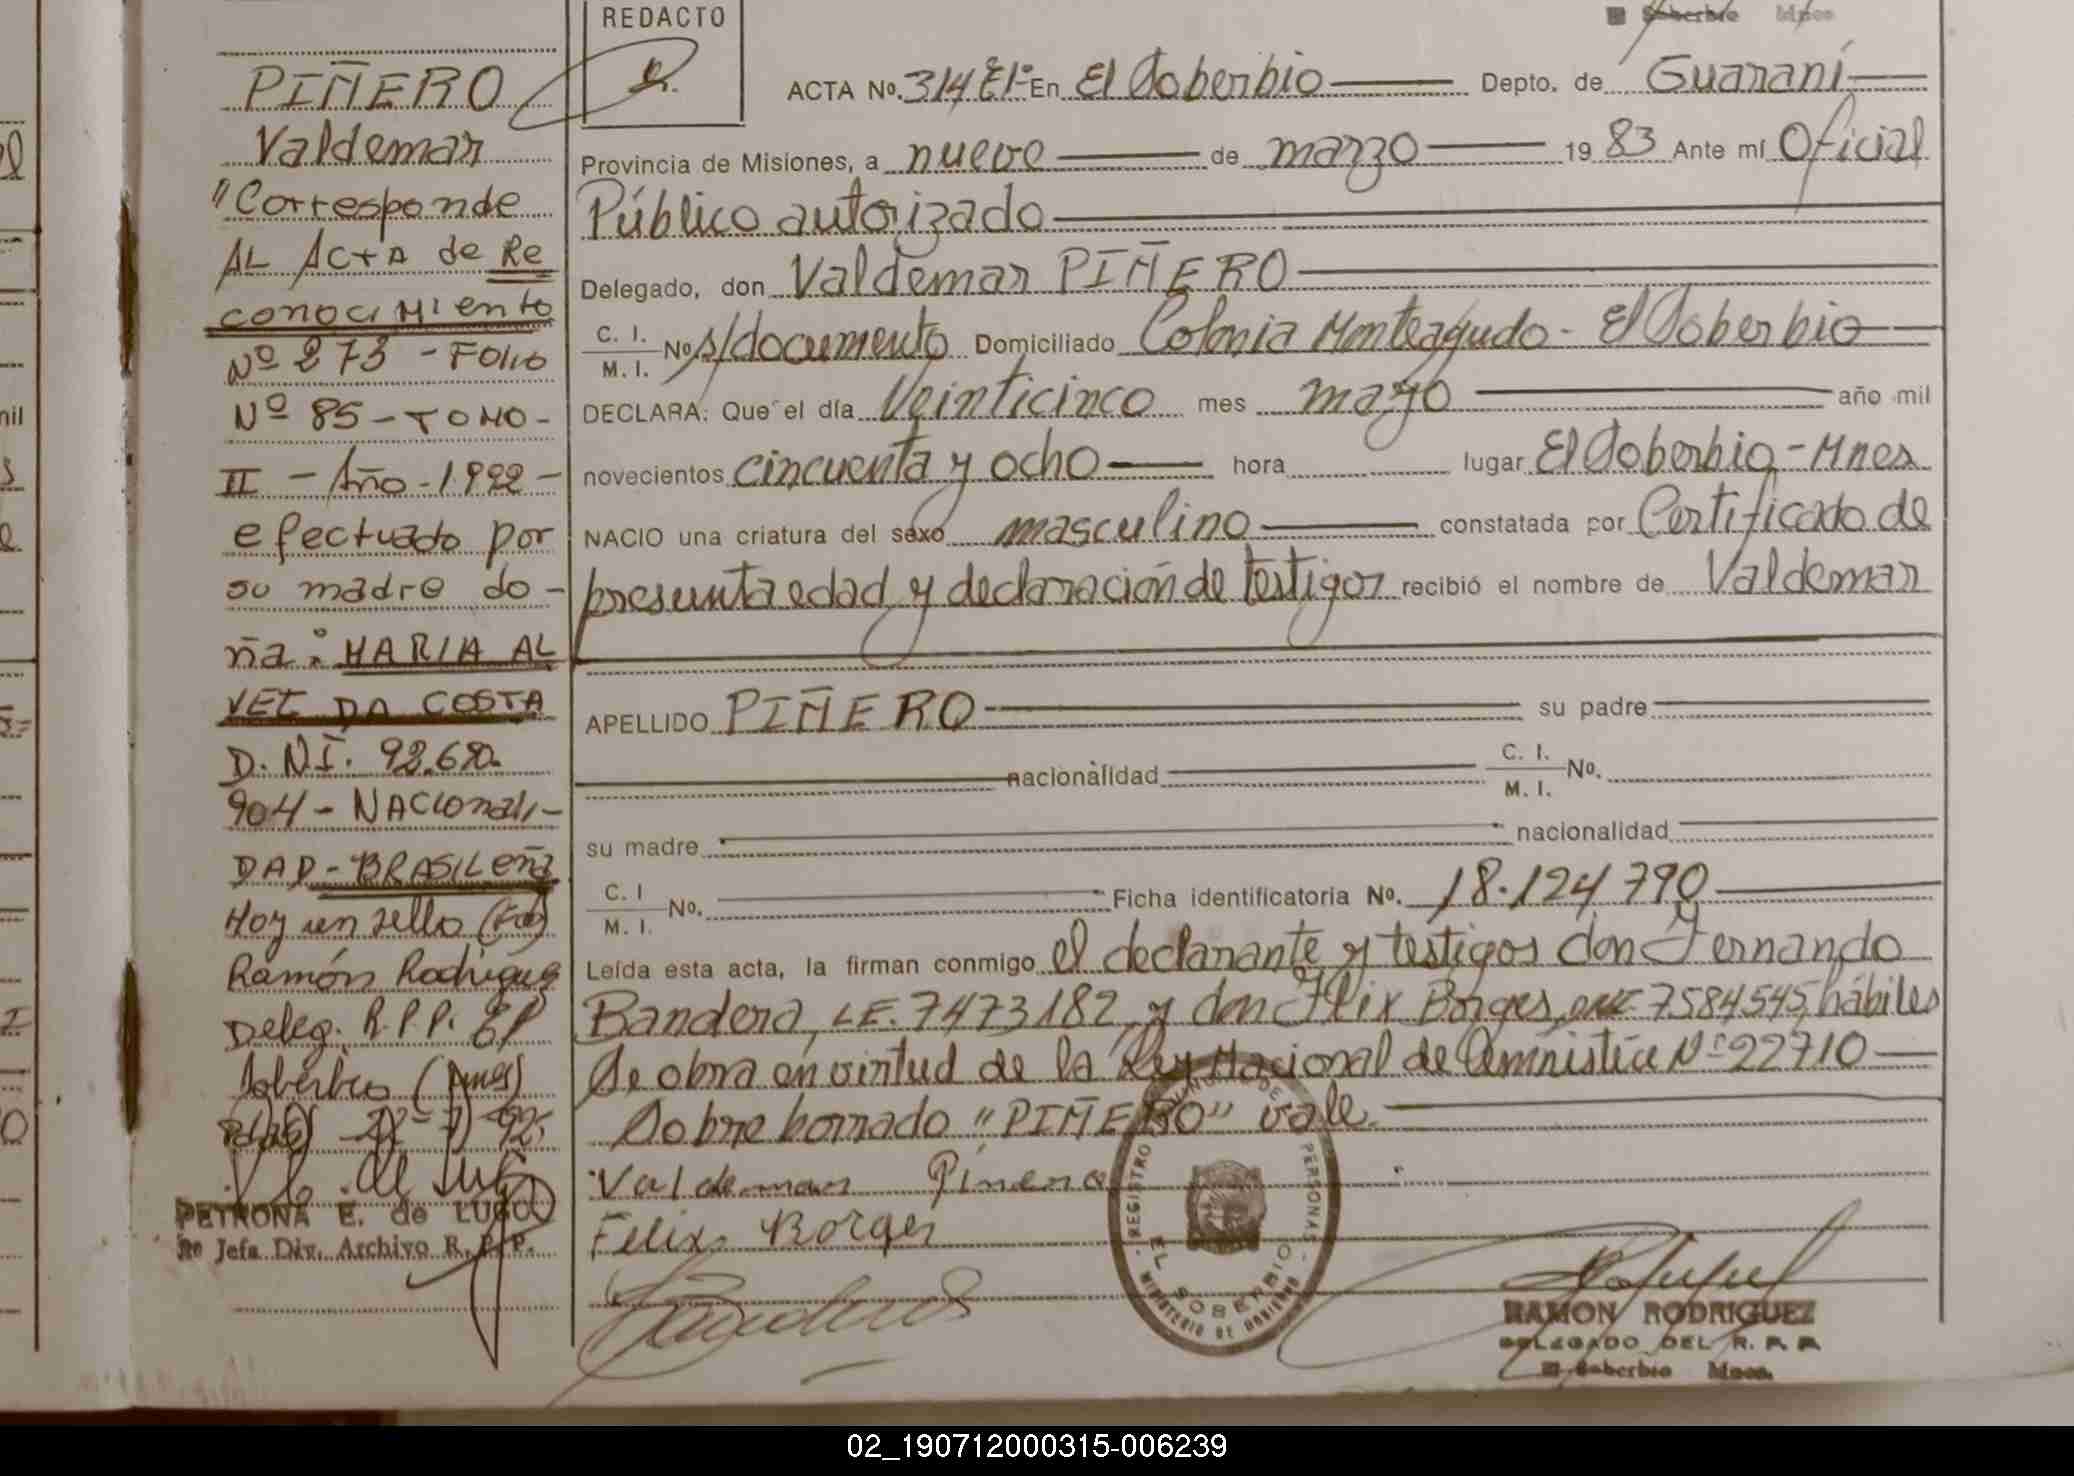 REDACTO
El Soberbio Mnes.
PIÑERO
Valdemar
"Corresponde
AL ACTA de Re
conociMiento
Nº 273 - FOLIO
Nº 85 - TOMO -
II - Año - 1992 -
efectuado por
su madre do-
ña: MARIA AL
VEZ DA COSTA
D.N.I. 92.670.
904 - NACIONALI-
DAD - BRASILEÑA
Hoy un sello (Fdo)
Ramón Rodriguez
Deleg. R.P.P. El
Soberbio (Mnes)
22 - 7 - 92
PETRONA E. de LUGO
Jefa Div. Archivo R. P. P.
ACTA No. 314 En El Soberbio Depto. de Guaraní
Provincia de Misiones, a nueve de marzo 1983 Ante mí Oficial
Público autorizado
Delegado, don Valdemar PIÑERO
C. I.
M. I. No s/documento Domiciliado Colonia Monteagudo - El Soberbio
DECLARA: Que el día Veinticinco mes mayo año mil
novecientos cincuenta y ocho hora lugar El Soberbio - Mnes
NACIO una criatura del sexo masculino constatada por Certificado de
presunta edad y declaración de testigos recibió el nombre de Valdemar
APELLIDO PIÑERO su padre
nacionalidad C. I.
M. I. No.
su madre nacionalidad
C. I
M. I. No. Ficha identificatoria No. 18.124790
Leída esta acta, la firman conmigo el declarante y testigos don Fernando
Bandera, LE. 7473182 y don Felix Borges, 7584545, hábiles
Se obra en virtud de la Ley Nacional de Amnistia Nº 22710
Sobre borrado "PIÑERO" vale.
Valdemar Pinero
Felix Borges
REGISTRO PERSONAS
EL SOBERBIO
MINISTERIO DE GOBIERNO
RAMON RODRIGUEZ
DELEGADO DEL R. P. P.
El Soberbio Mnes.
02_190712000315-006239